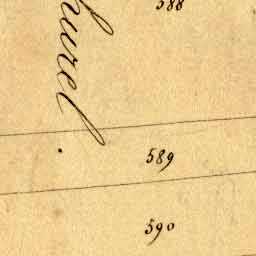 588
hurel.
589
590